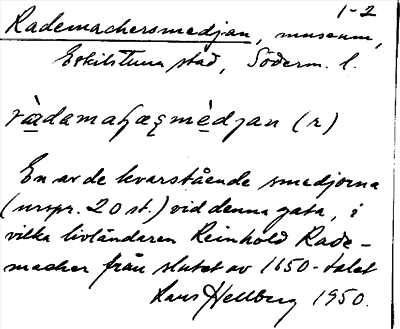 1-2
Rademachersmedjan, museum,
Eskilstuna stad, Söderm. l.
(r)
En av de kvarstående smedjorna
(urspr. 20 st.) vid denna gata, i
vilka livländaren Reinhold Rade-
macher från slutet av 1650-talet
Lars Hellberg 1950.